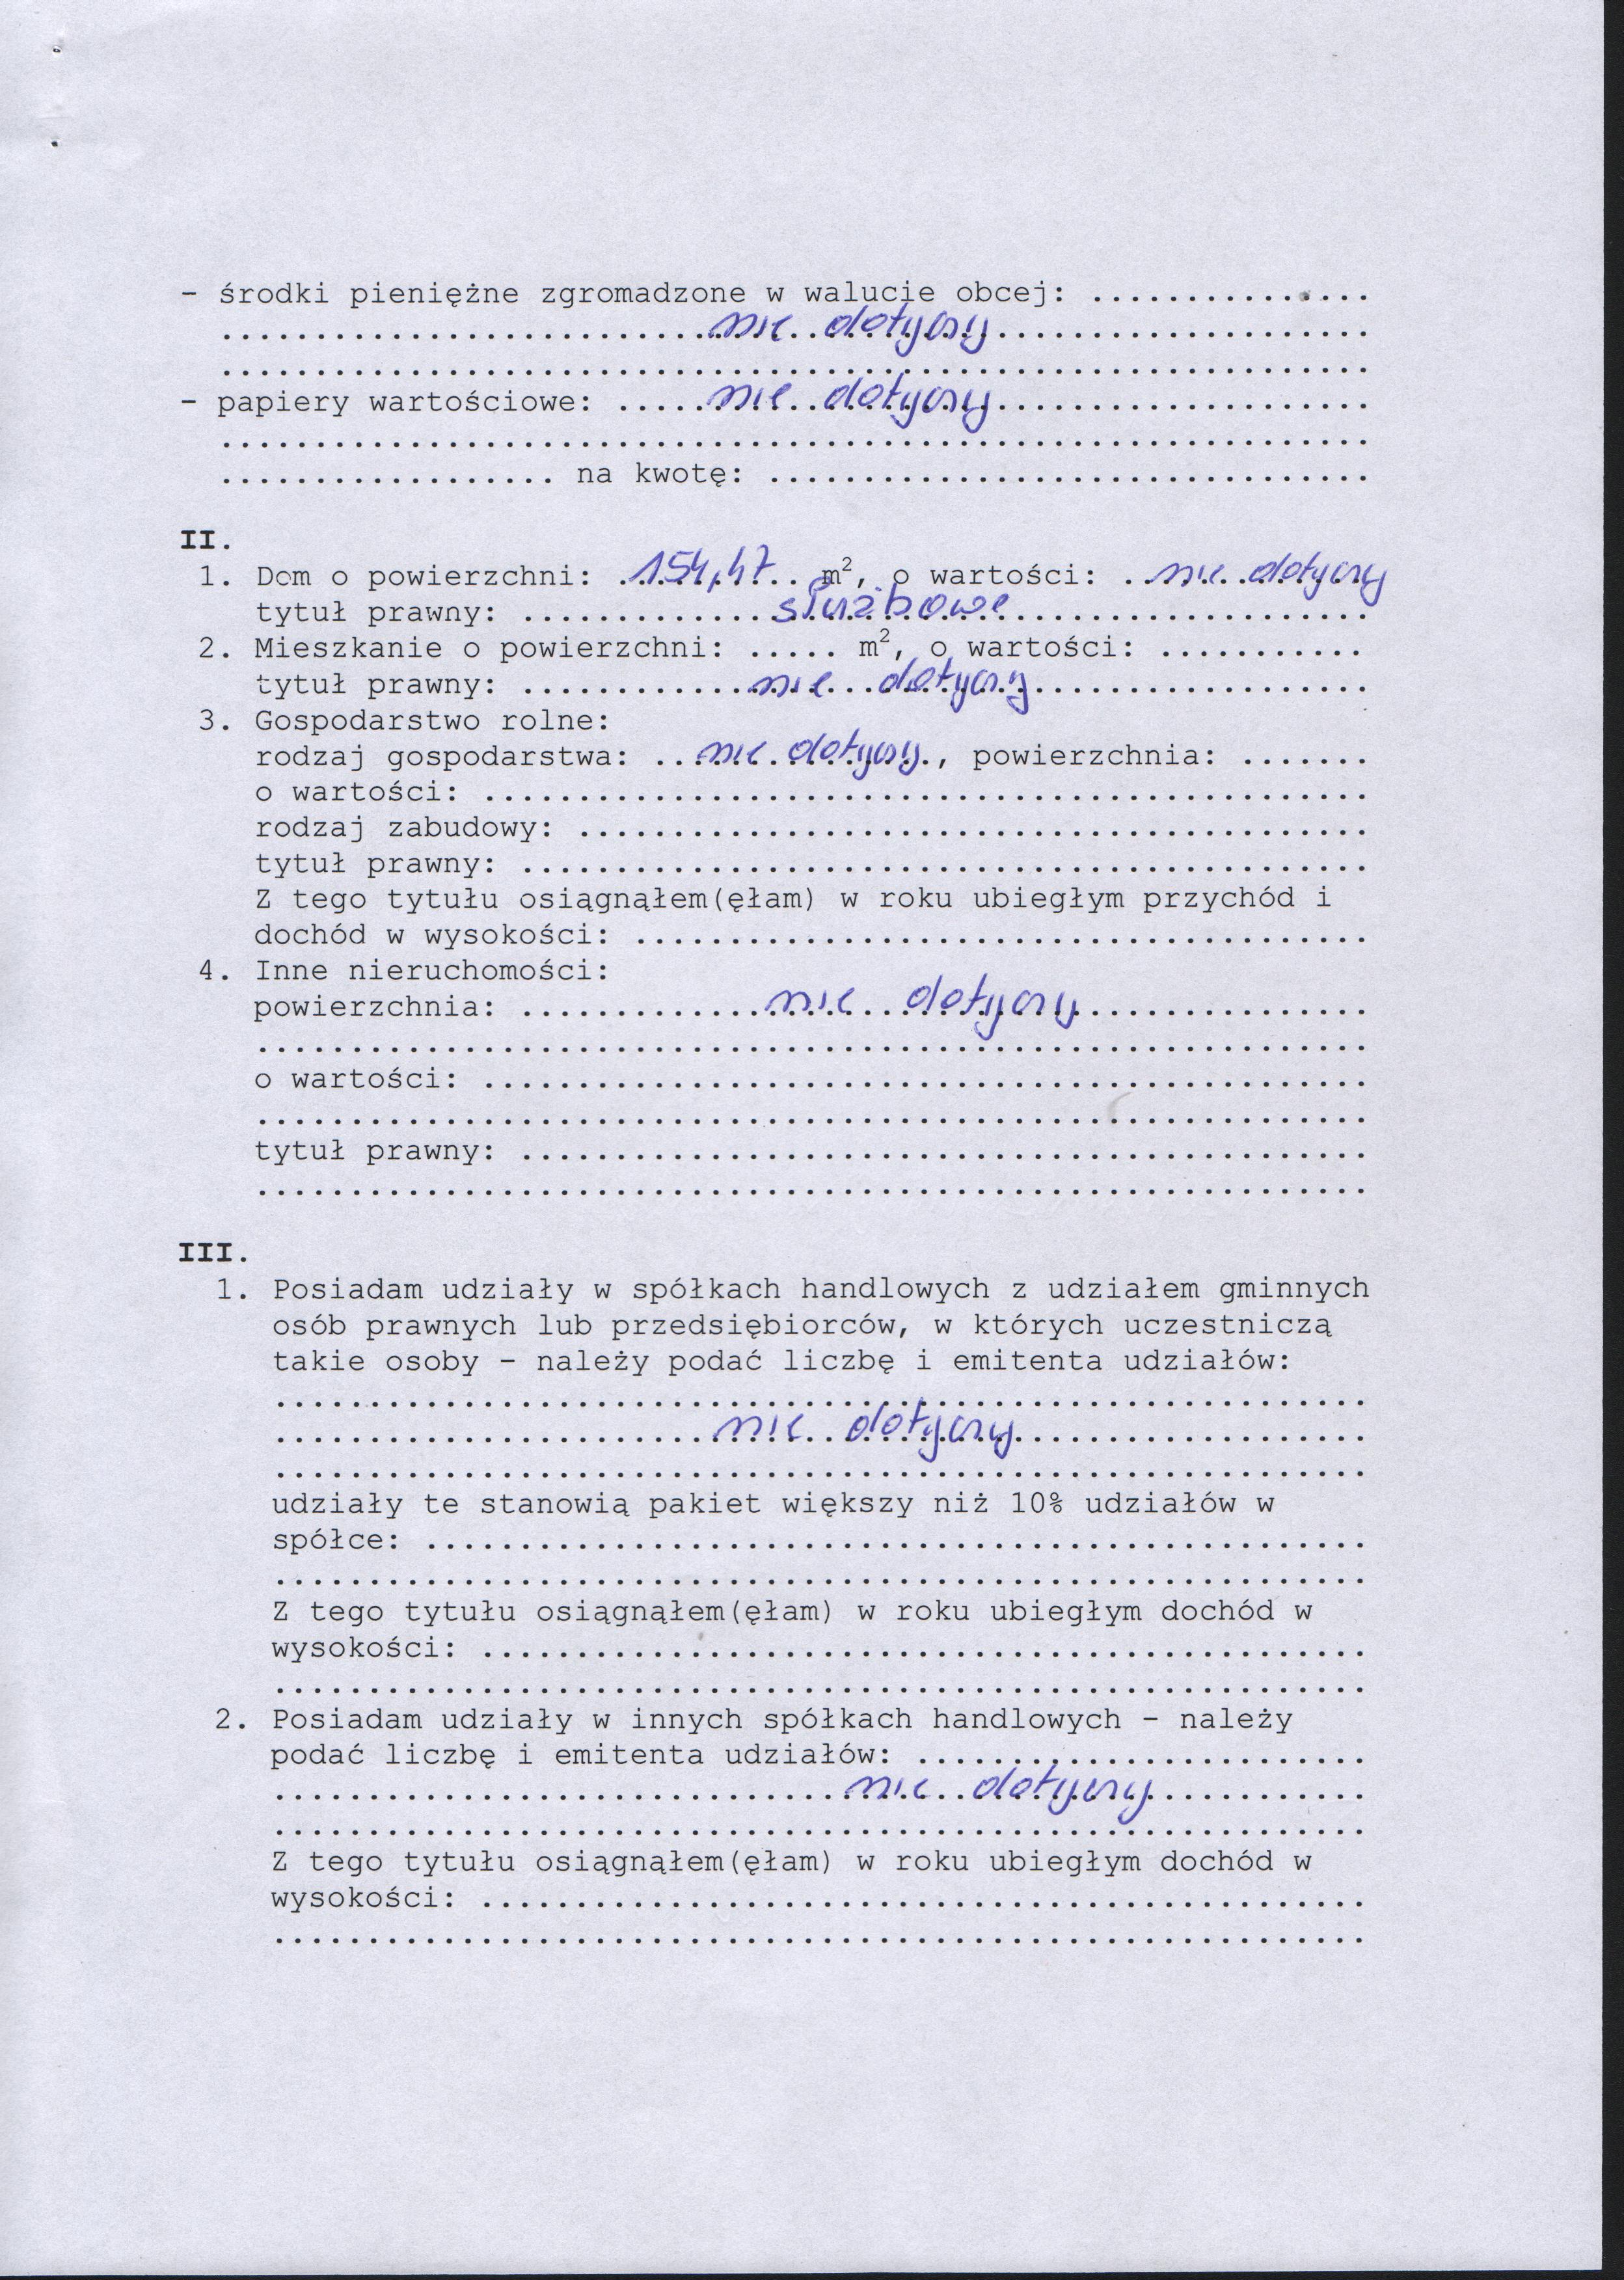 - środki pieniężne zgromadzone w walucie obcej: ...............
.........................nie dotyczy....................
.............................................................
- papiery wartościowe: .....nie dotyczy....................
.............................................................
.................. na kwotę: ................................
II.
1. Dom o powierzchni: 154,47 m², o wartości: nie dotyczy
tytuł prawny: ..............służbowe...................
2. Mieszkanie o powierzchni: ..... m², o wartości: ...........
tytuł prawny: ............nie dotyczy..................
3. Gospodarstwo rolne:
rodzaj gospodarstwa: ..nie dotyczy., powierzchnia: .......
o wartości: ...............................................
rodzaj zabudowy: ..........................................
tytuł prawny: .............................................
Z tego tytułu osiągnąłem(ęłam) w roku ubiegłym przychód i
dochód w wysokości: .......................................
4. Inne nieruchomości:
powierzchnia: .............nie dotyczy................
...........................................................
o wartości: ...............................................
...........................................................
tytuł prawny: .............................................
...........................................................
III.
1. Posiadam udziały w spółkach handlowych z udziałem gminnych
osób prawnych lub przedsiębiorców, w których uczestniczą
takie osoby - należy podać liczbę i emitenta udziałów:
..........................................................
.......................nie dotyczy...................
..........................................................
udziały te stanowią pakiet większy niż 10% udziałów w
spółce: ..................................................
..........................................................
Z tego tytułu osiągnąłem(ęłam) w roku ubiegłym dochód w
wysokości: ...............................................
..........................................................
2. Posiadam udziały w innych spółkach handlowych - należy
podać liczbę i emitenta udziałów: ........................
..............................nie dotyczy............
..........................................................
Z tego tytułu osiągnąłem(ęłam) w roku ubiegłym dochód w
wysokości: ...............................................
..........................................................